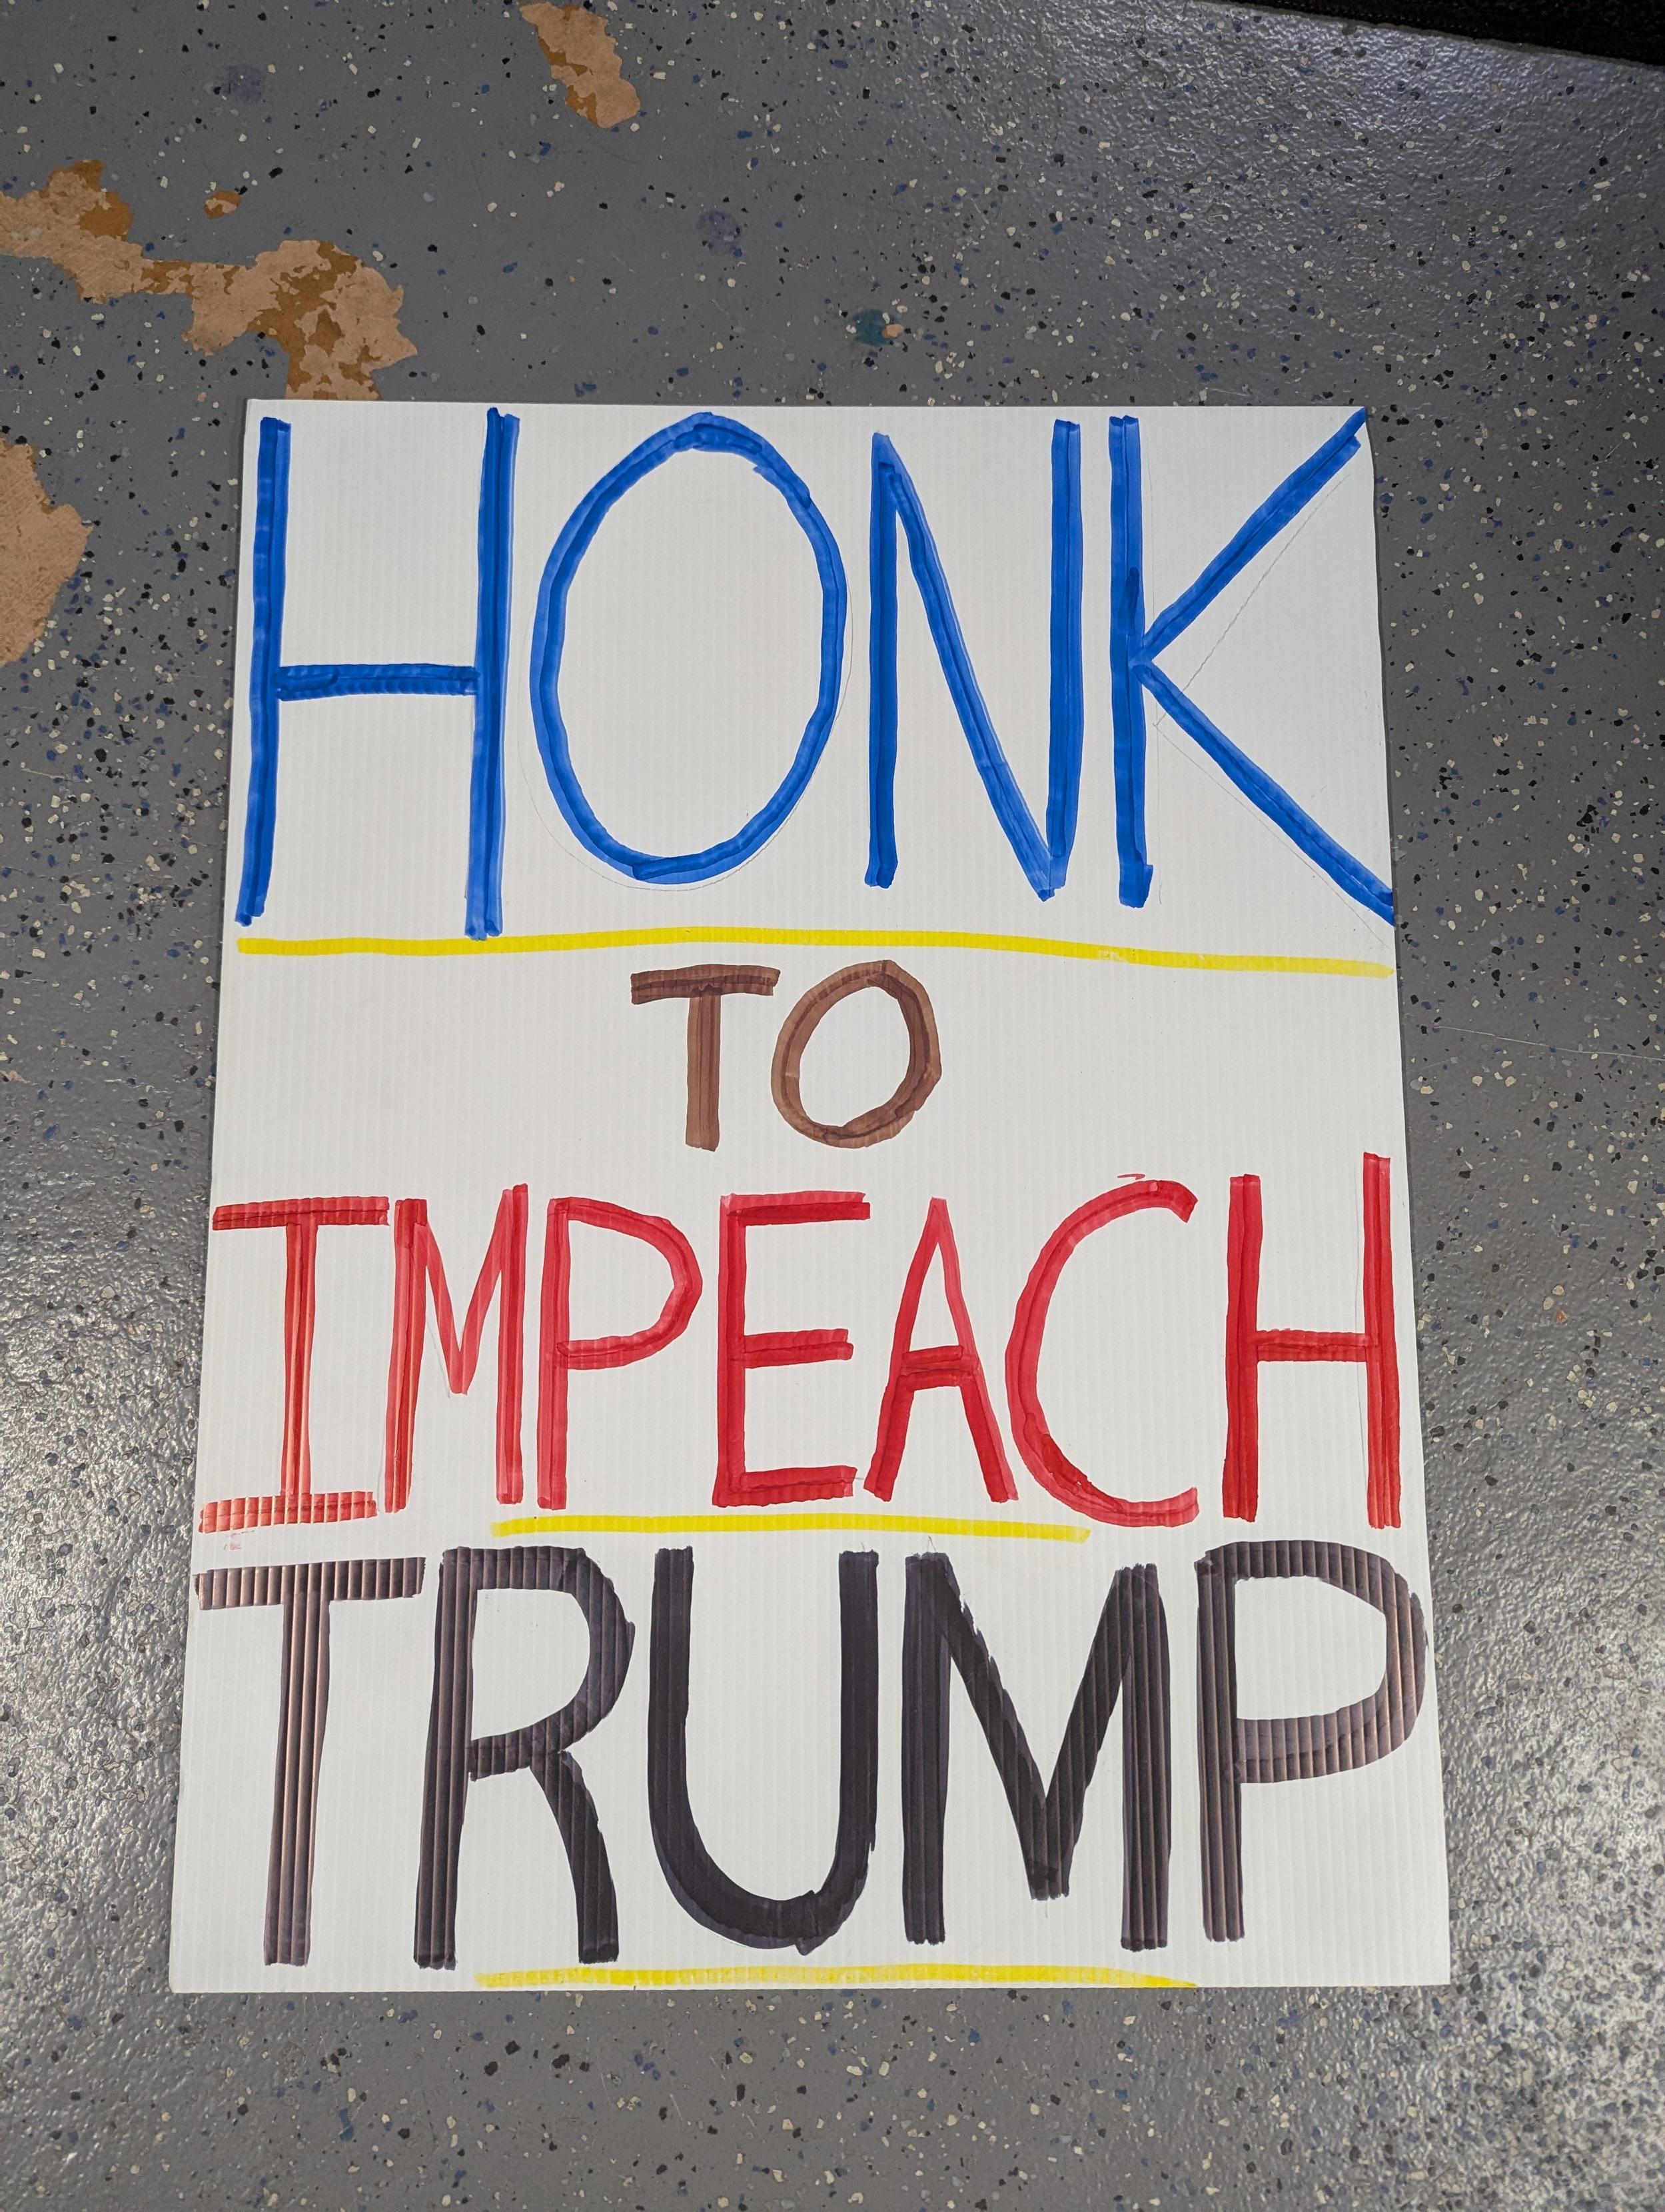 HONK
TO
IMPEACH
TRUMP